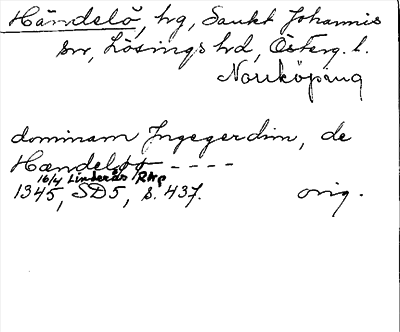 Händelö, hg, Sankt Johannis
sn, Lösings hd, Österg. l.
Norrköping
dominam Ingegerdim, de
Hændeløø ----
16/4 Linderås RAp
1345, SD5, s. 437. orig.